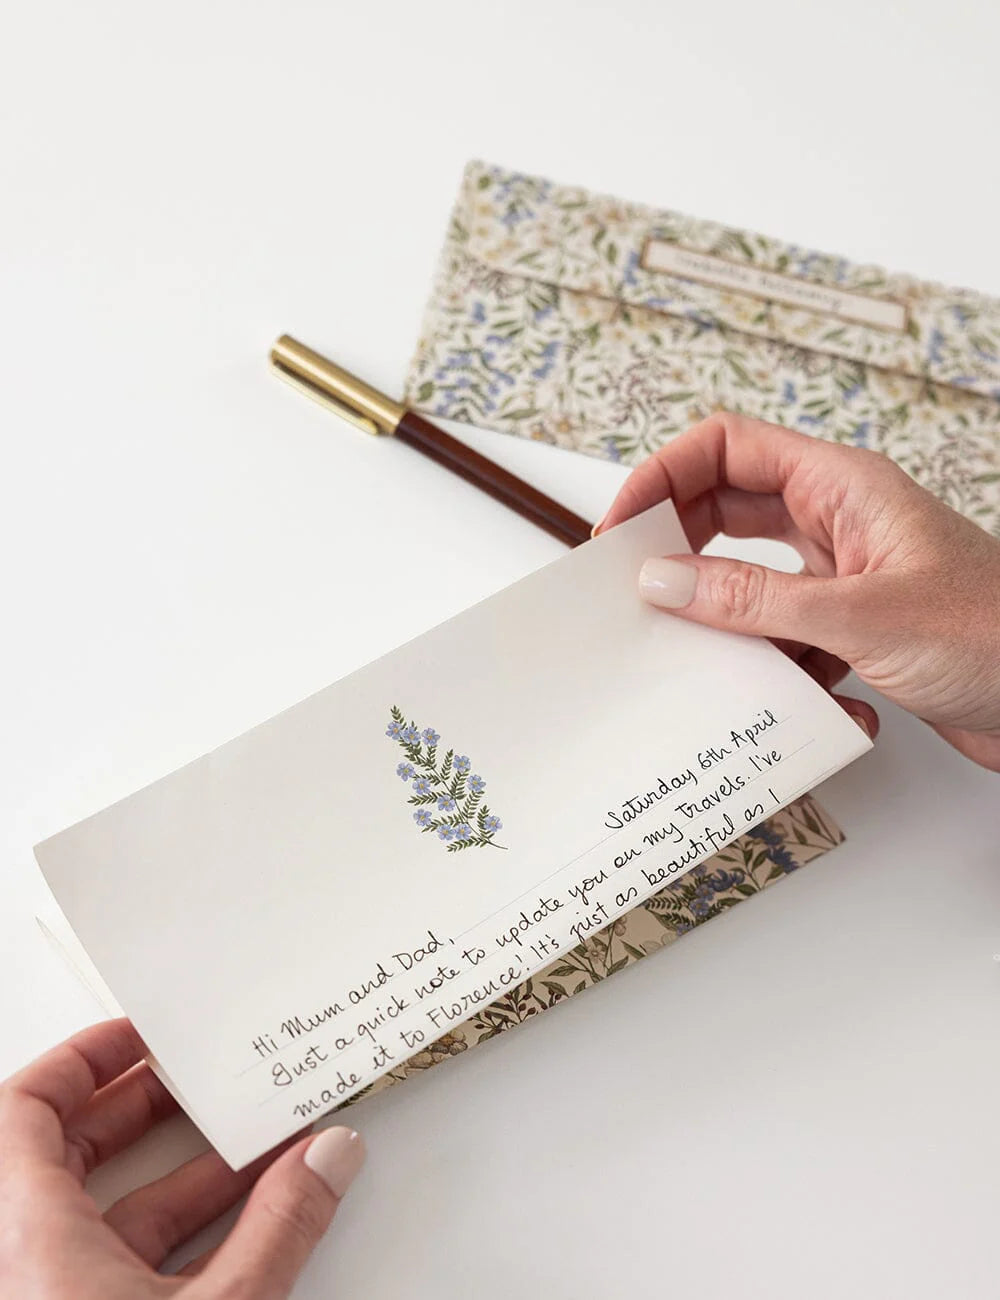 Saturday 6th April
Hi Mum and Dad,
Just a quick note to update you on my travels. I've
made it to Florence! It's just as beautiful as I